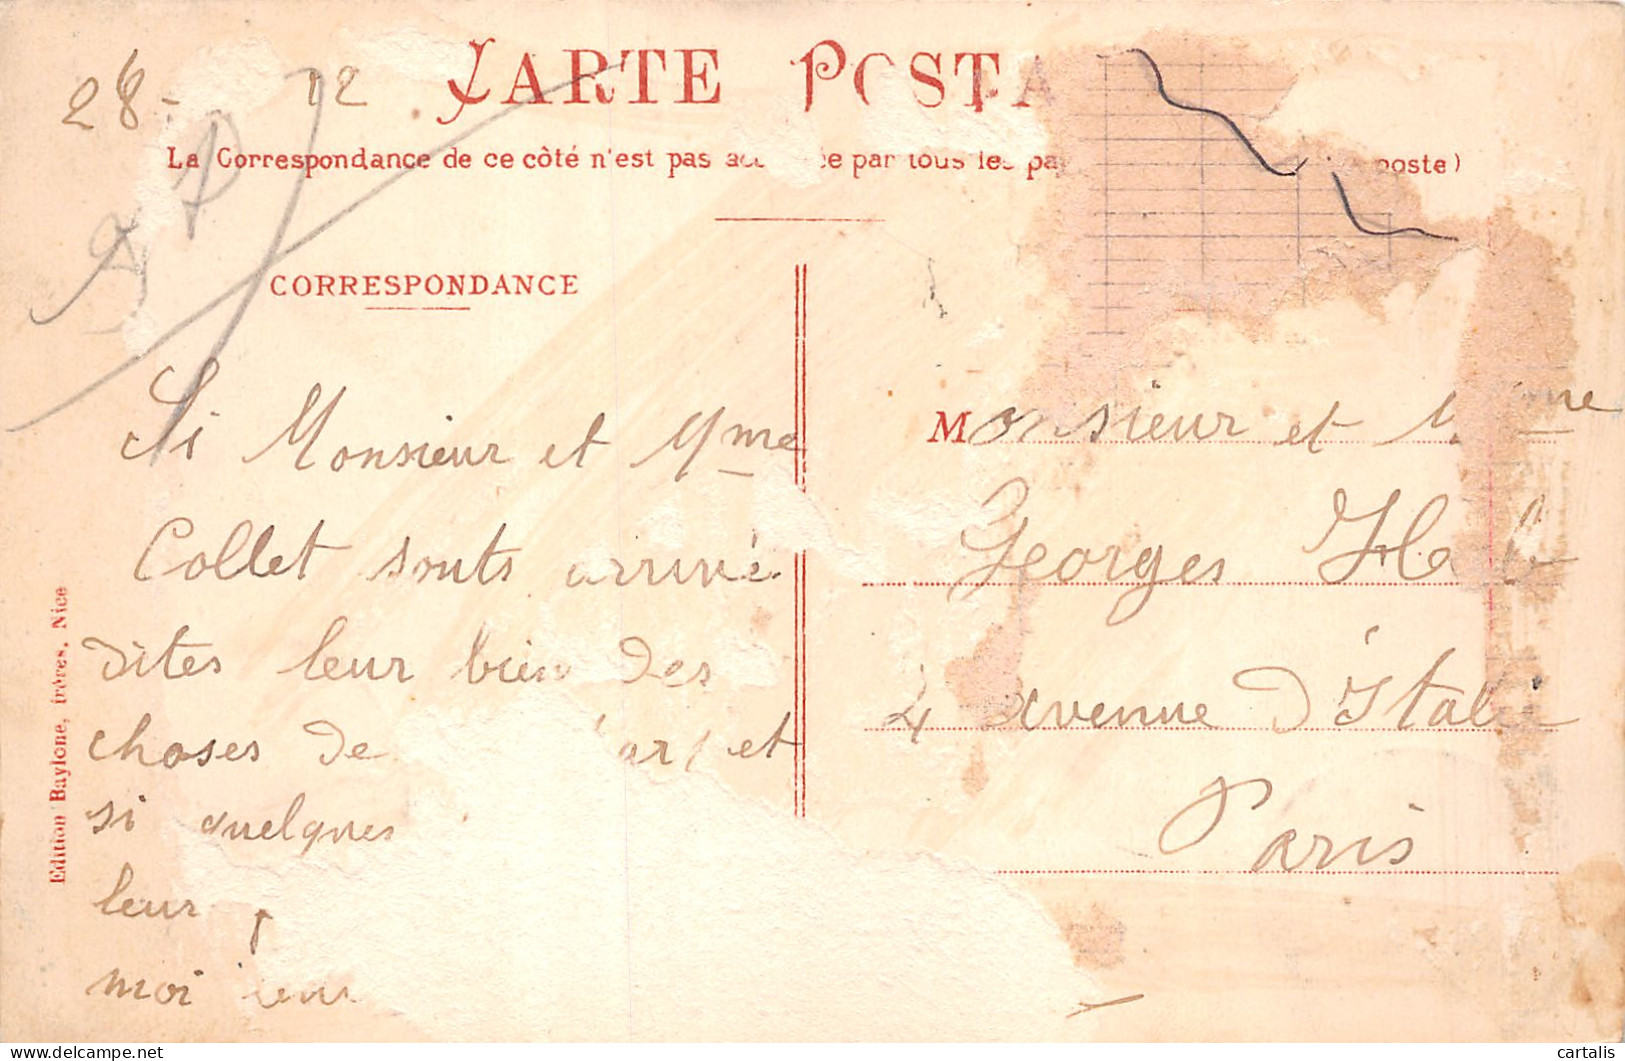 28- 12
CARTE POSTA
La Correspondance de ce côté n'est pas par tous les poste)
CORRESPONDANCE
Si Monsieur et Mme
Collet sonts arrivé
dites leur bien des
choses de et
si quelques
leur
moi
Monsieur et
Georges
4 avenue d'Italie
Paris
Edition Baylone, frères, Nice
cartalis